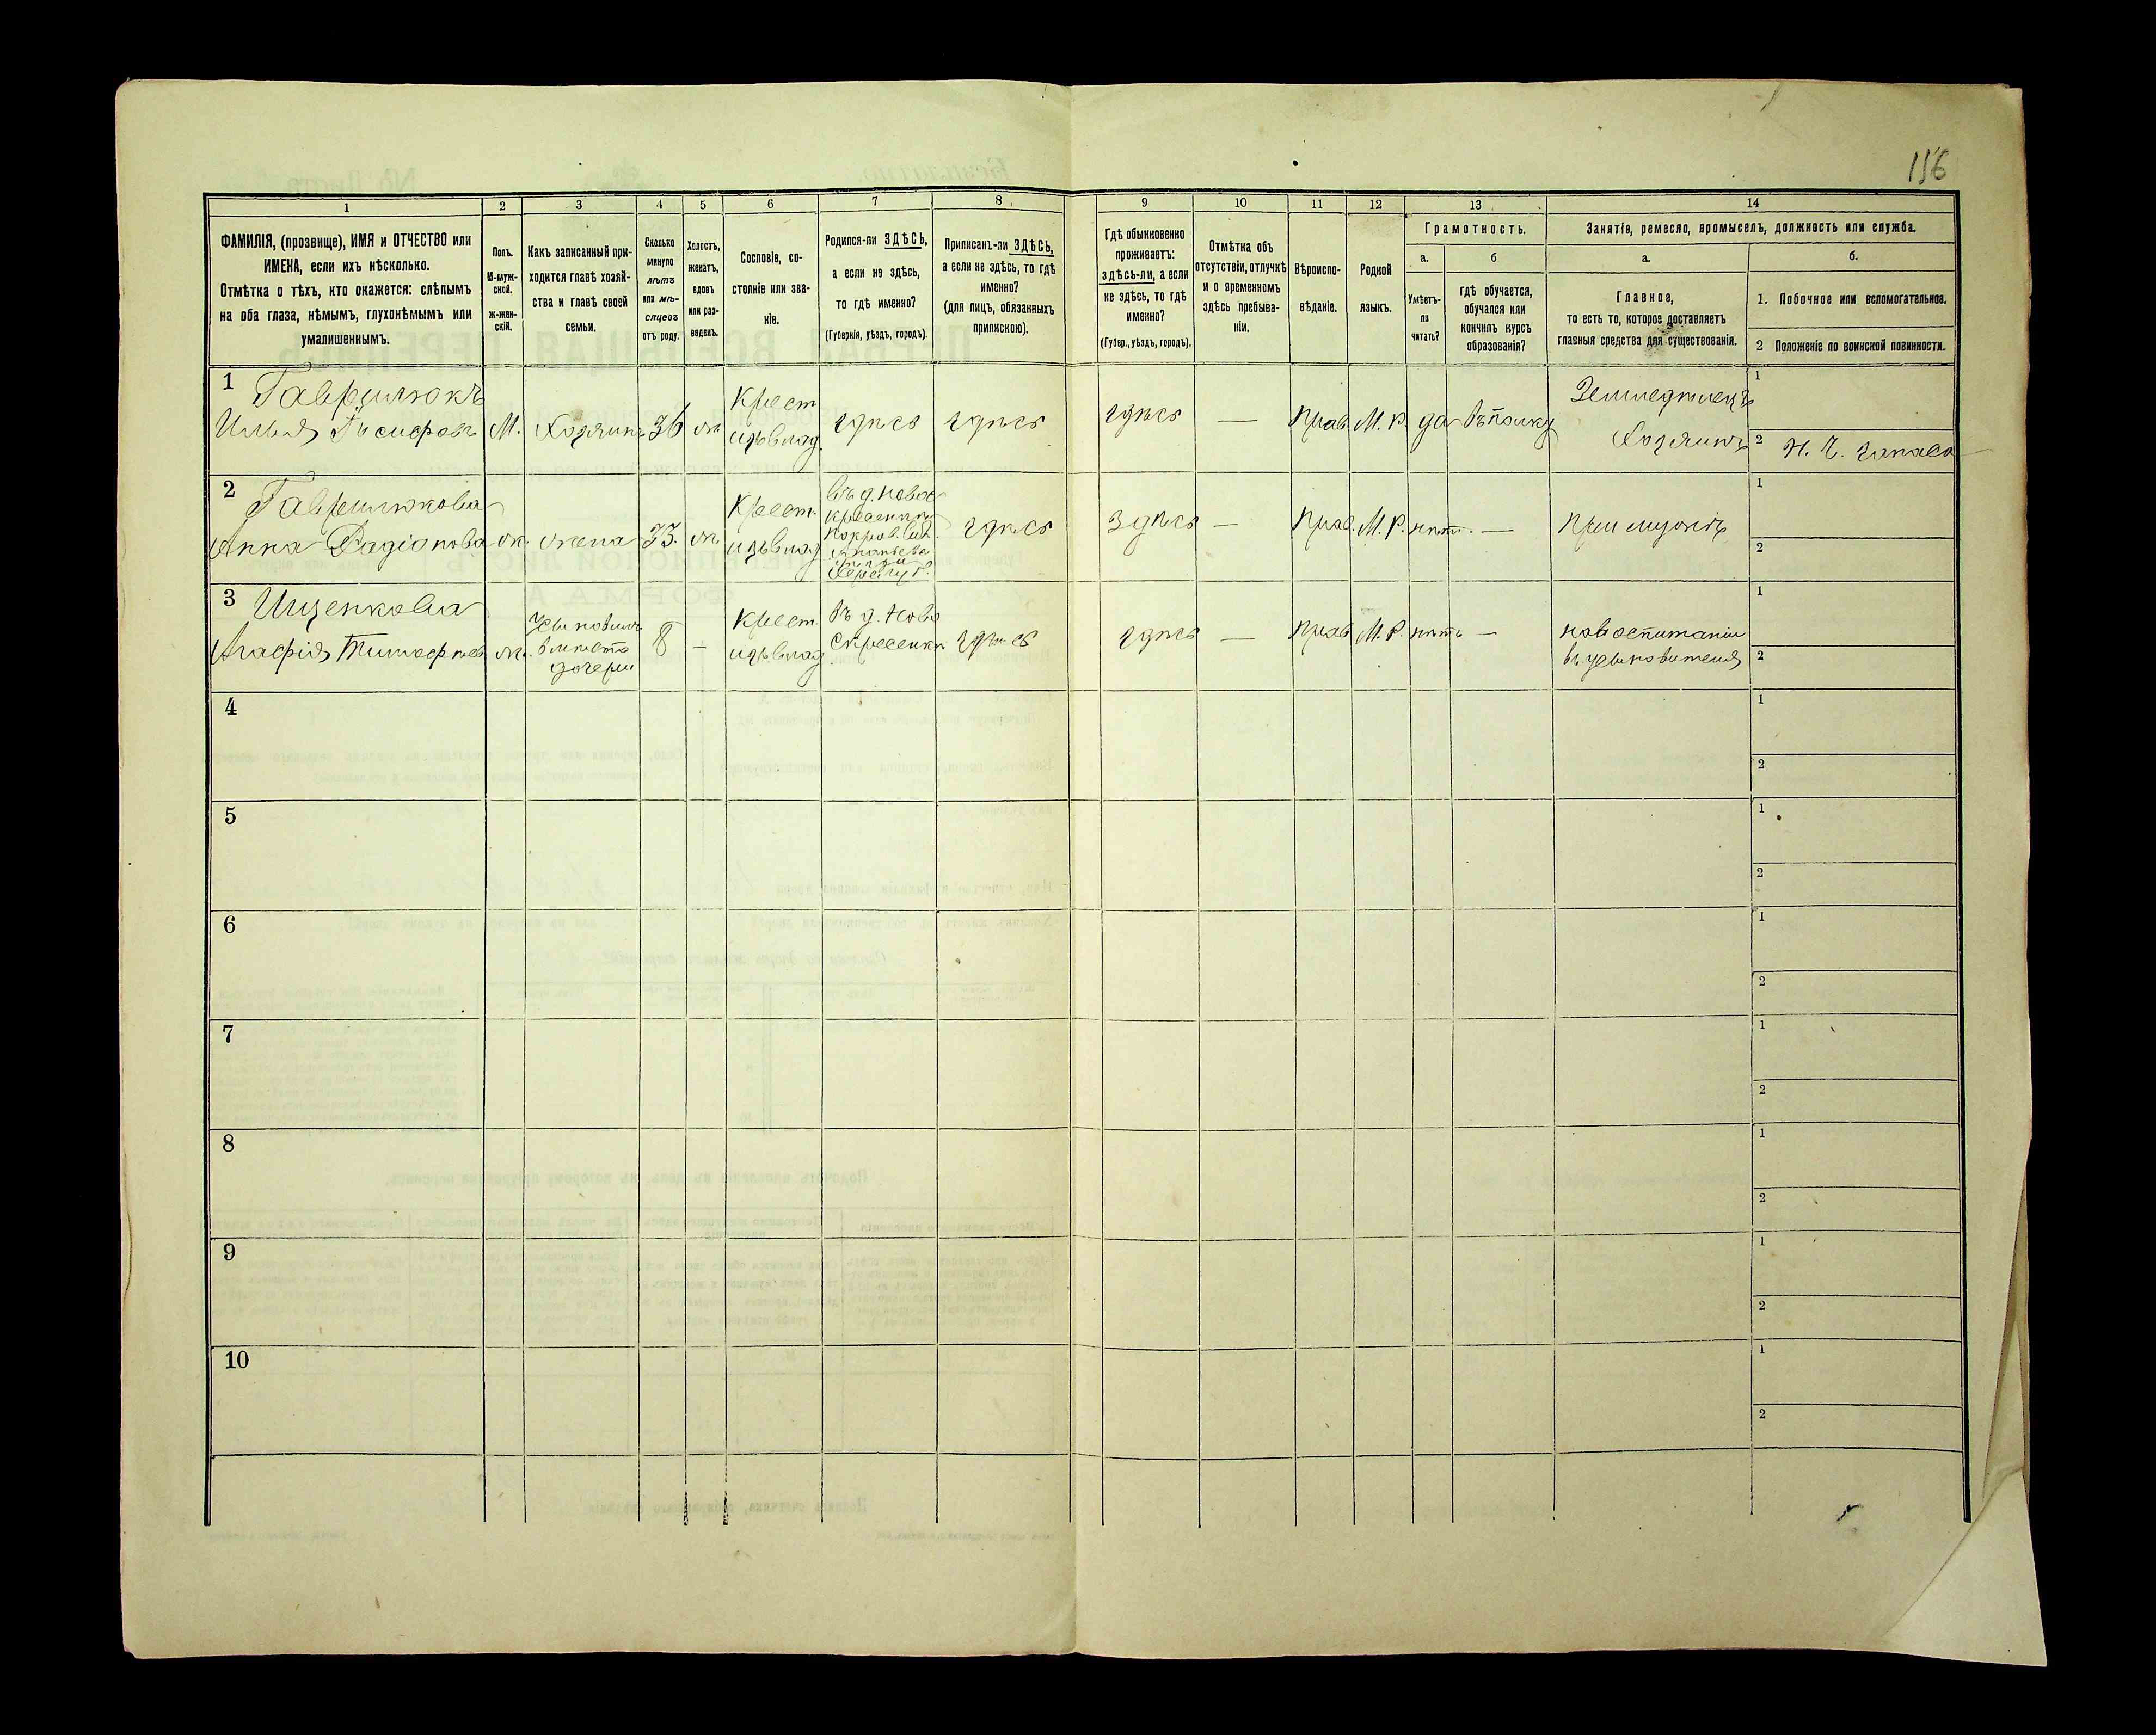 156
1
2
3
4
5
6
7
8
9
10
11
12
13
14
ФАМИЛІЯ, (прозвище), ИМЯ и ОТЧЕСТВО или
ИМЕНА, если ихъ нѣсколько.
Отмѣтка о тѣхъ, кто окажется: слѣпымъ
на оба глаза, нѣмымъ, глухонѣмымъ или
умалишеннымъ.
Полъ.
М-муж-
ской.
Ж-жен-
скій.
Какъ записанный при-
ходится главѣ хозяй-
ства и главѣ своей
семьи.
Сколько
минуло
лѣтъ
или мѣ-
сяцевъ
отъ роду.
Холостъ,
женатъ,
вдовъ
или раз-
веденъ.
Сословіе, со-
стояніе или зва-
ніе.
Родился-ли ЗДѢСЬ,
а если не здѣсь,
то гдѣ именно?
(Губернія, уѣздъ, городъ).
Приписанъ-ли ЗДѢСЬ,
а если не здѣсь, то гдѣ
именно?
(для лицъ, обязанныхъ
припискою).
Гдѣ обыкновенно
проживаетъ:
здѣсь-ли, а если
не здѣсь, то гдѣ
именно?
(Губер., уѣздъ, городъ).
Отмѣтка объ
отсутствіи, отлучкѣ
и о временномъ
здѣсь пребыва-
ніи.
Вѣроиспо-
вѣданіе.
Родной
языкъ.
Грамотность.
а.
Умѣетъ-
ли
читать?
б
гдѣ обучается,
обучался или
кончилъ курсъ
образованія?
Занятія, ремесло, промыселъ, должность или служба.
а.
Главное,
то есть то, которое доставляетъ
главныя средства для существованія.
б.
1. Побочное или вспомогательное.
2 Положеніе по воинской повинности.
1
Гаврилюкъ
Илья
М.
Хозяинъ
36
ж.
Крест
изъ влад.
здѣсь
здѣсь
здѣсь
—
Прав.
М. Р.
да
въ полку
Земледѣлецъ
Хозяинъ
1
2
Н. Ч. запаса
2
Гаврилюкова
Анна Радіонова
ж.
жена
33.
ж.
Крест.
изъ влад
въ д. Ново
здѣсь
Здѣсь
—
Прав.
М. Р.
нѣтъ.
—
При мужѣ
1
2
3
Ищенкова
Агафія
ж.
вмѣсто
дочери
8
—
Крест.
изъ влад
въ д. Ново
здѣсь
здѣсь
—
Прав
М. Р.
нѣтъ
—
на воспитаніи
въ усыновителя
1
2
4
1
2
5
1
2
6
1
2
7
1
2
8
1
2
9
1
2
10
1
2